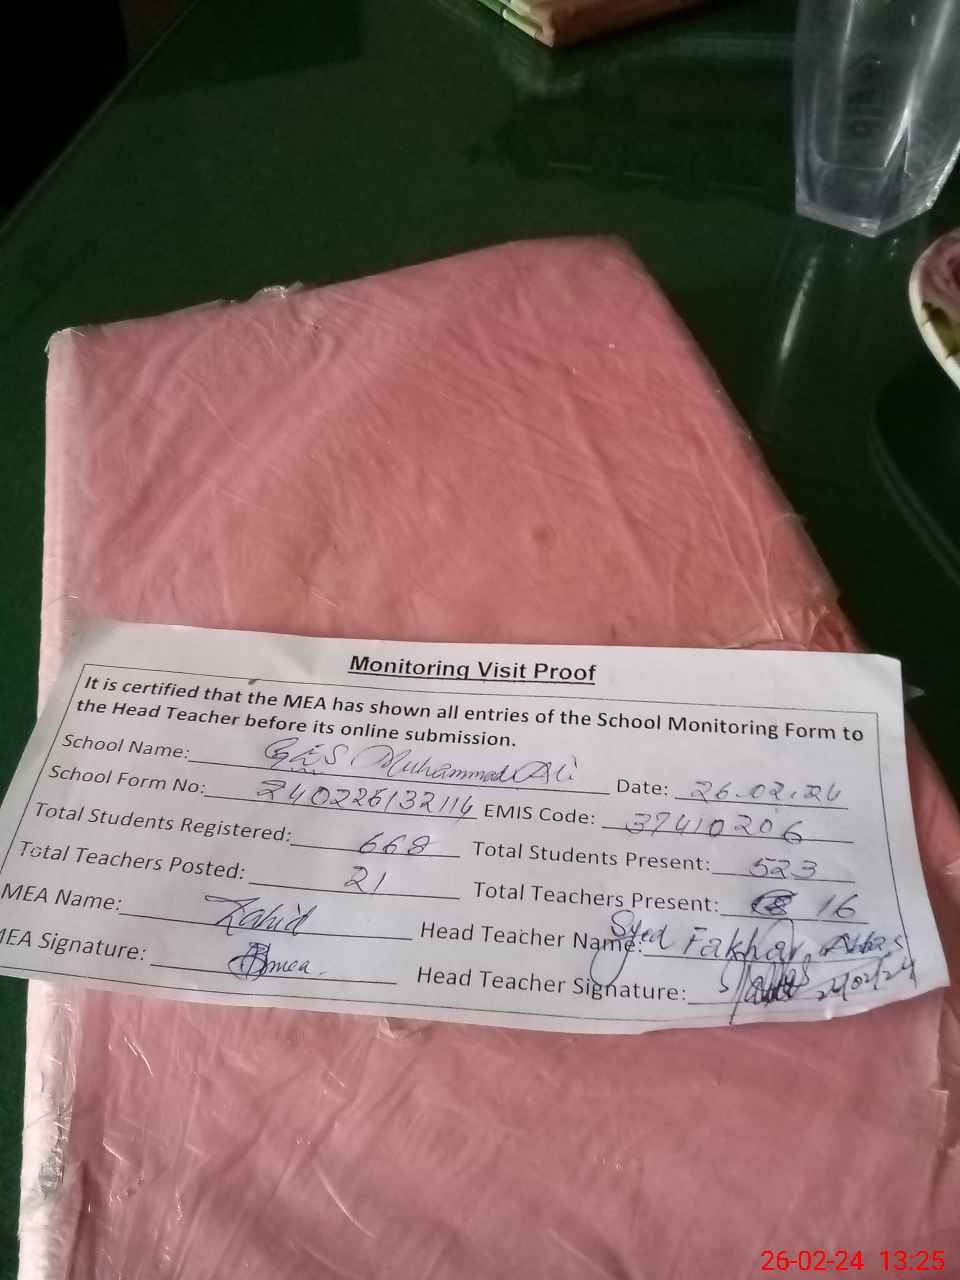 Monitoring Visit Proof
It is certified that the MEA has shown all entries of the School Monitoring Form to
the Head Teacher before its online submission.
School Name: GES Muhammad Ali Date: 26.02.24
School Form No: 240226132114 EMIS Code: 37410206
Total Students Registered: 668 Total Students Present: 523
Total Teachers Posted: 21 Total Teachers Present: 16
MEA Name: Zahid Head Teacher Name: Syed Fakhar Abbas
MEA Signature: mea. Head Teacher Signature:
26-02-24 13:25